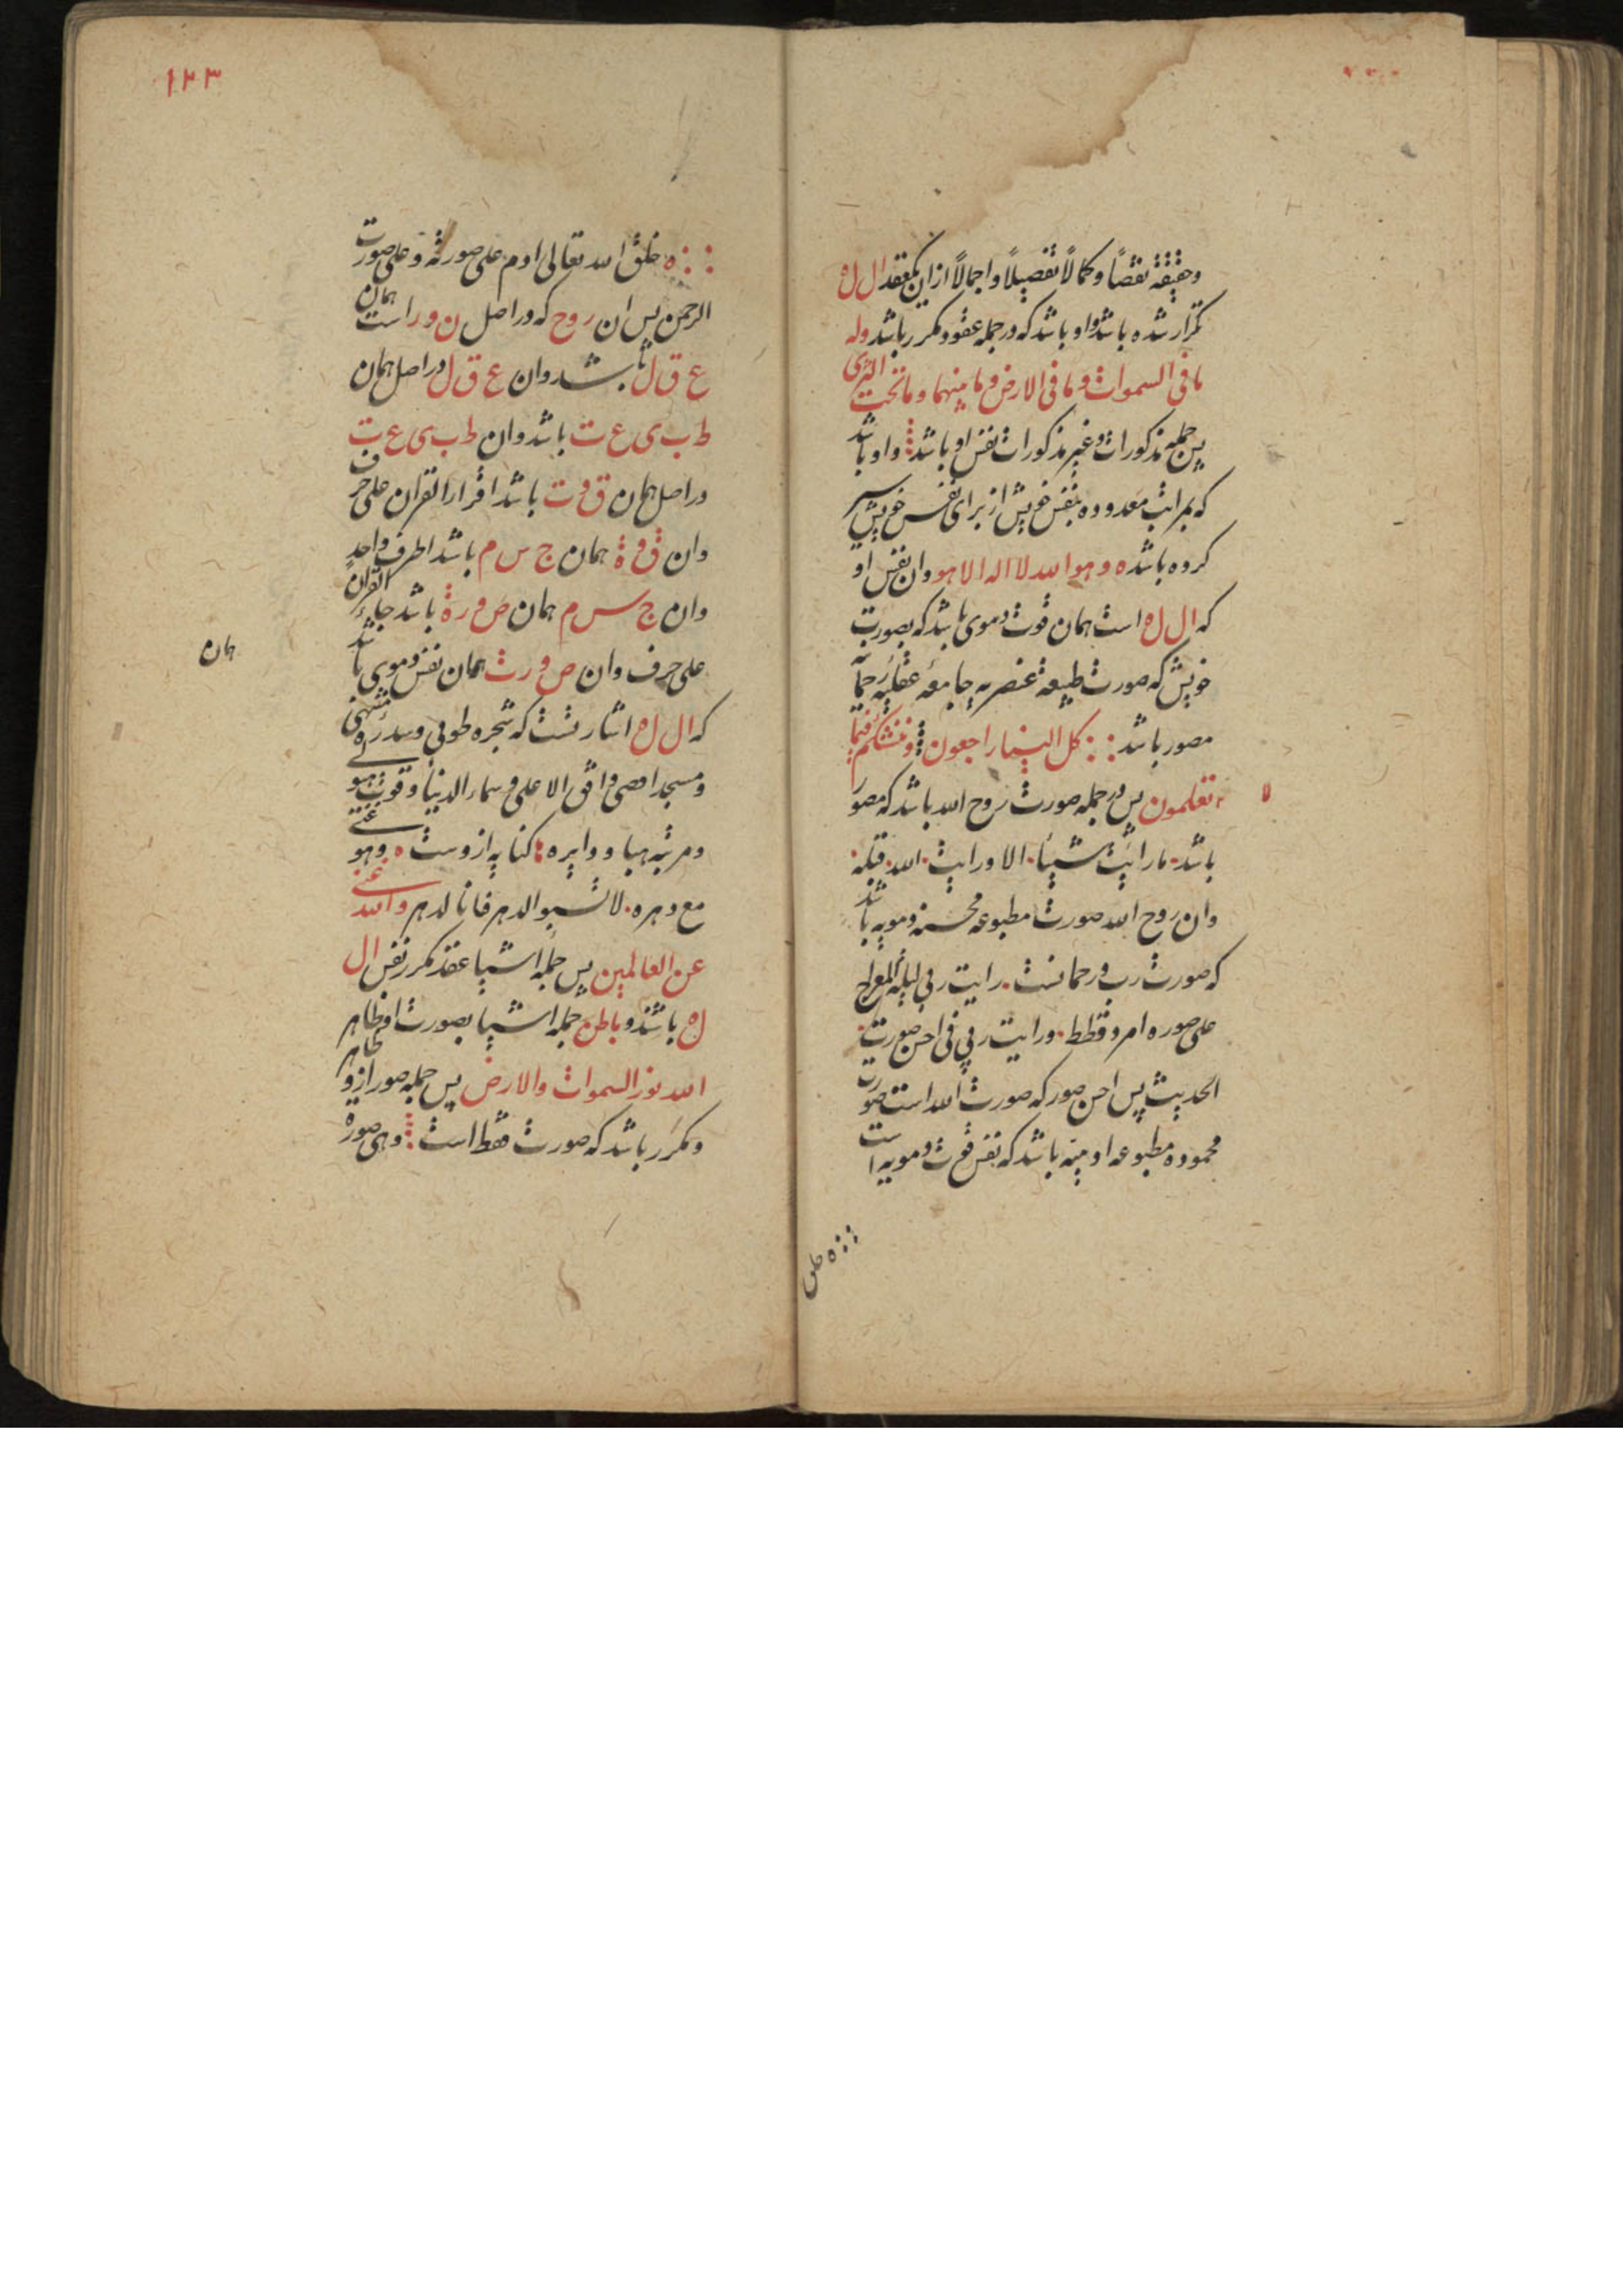 وحقیقة نقصًا وکمالًا تفصیلًا واجمالًا ازان یکعقد ال ل ه
تکرار شده باشد واو باشد که در جمله عقود مکرر باشد وله
ما فی السموات وما فی الارض وما بینهما وما تحت الثری
پس جمله مذکورات وغیر مذکورات نفس او باشد واو باشد
که بمراتب معدوده بنفس خویش از برای نفس خویش سیر
کرده باشد ه وهو الله لا اله الا هو وان نفس او
که ال ل ه است همان قوت دموی باشد که بصورت
خویش که صورت طبیعة عنصریه جامعه عقلیه رحمانیه
مصور باشد کل الینا راجعون وننشئکم فیما
لا
تعلمون پس در جمله صورت روح الله باشد که مصور
باشد ما رایت شیئا الا ورایت الله قبله
وان روح الله صورت مطبوعه محسنه دمویه باشد
که صورت رب ورحمانست رایت ربی لیلة المعراج
علی صوره امرد قطط ورایت ربی فی احسن صورت
الحدیث پس احسن صور که صورت الله است صورت
محموده مطبوعه ادمیه باشد که نفس قوت دمویه است
ه خلق
۱۲۳
ه خلق الله تعالی ادم علی صورته وعلی صورت
الرحمن پس ان روح که در اصل ن و ر است همان
ع ق ل باشد وان ع ق ل در اصل همان
ط ب ی ع ت باشد وان ط ب ی ع ت
در اصل همان ق و ت باشد اقرار القران علی حرف
وان ق و ة همان ج س م باشد اطرف واحد
وان ج س م همان ص و رة باشد جاء القران
علی حرف وان ص و رت همان نفس دموی باشد
همان
که ال ل ه اشارتست که شجره طوبی وسدره منتهی
ومسجد اقصی وافق الاعلی وسماء الدنیا وقوت
ومرتبه هبا ودایره کنایه ازوست ه وهو
مع دهره لا تسبوا الدهر فانا الدهر والله غنی
عن العالمین پس جمله اشیا عقد مکرر نفس ال
ل ه باشند وباطن جمله اشیا بصورت او ظاهر
الله نور السموات والارض پس جمله صور ازو ظاهر
ومکرر باشد که صورت فقط است وهی صورة